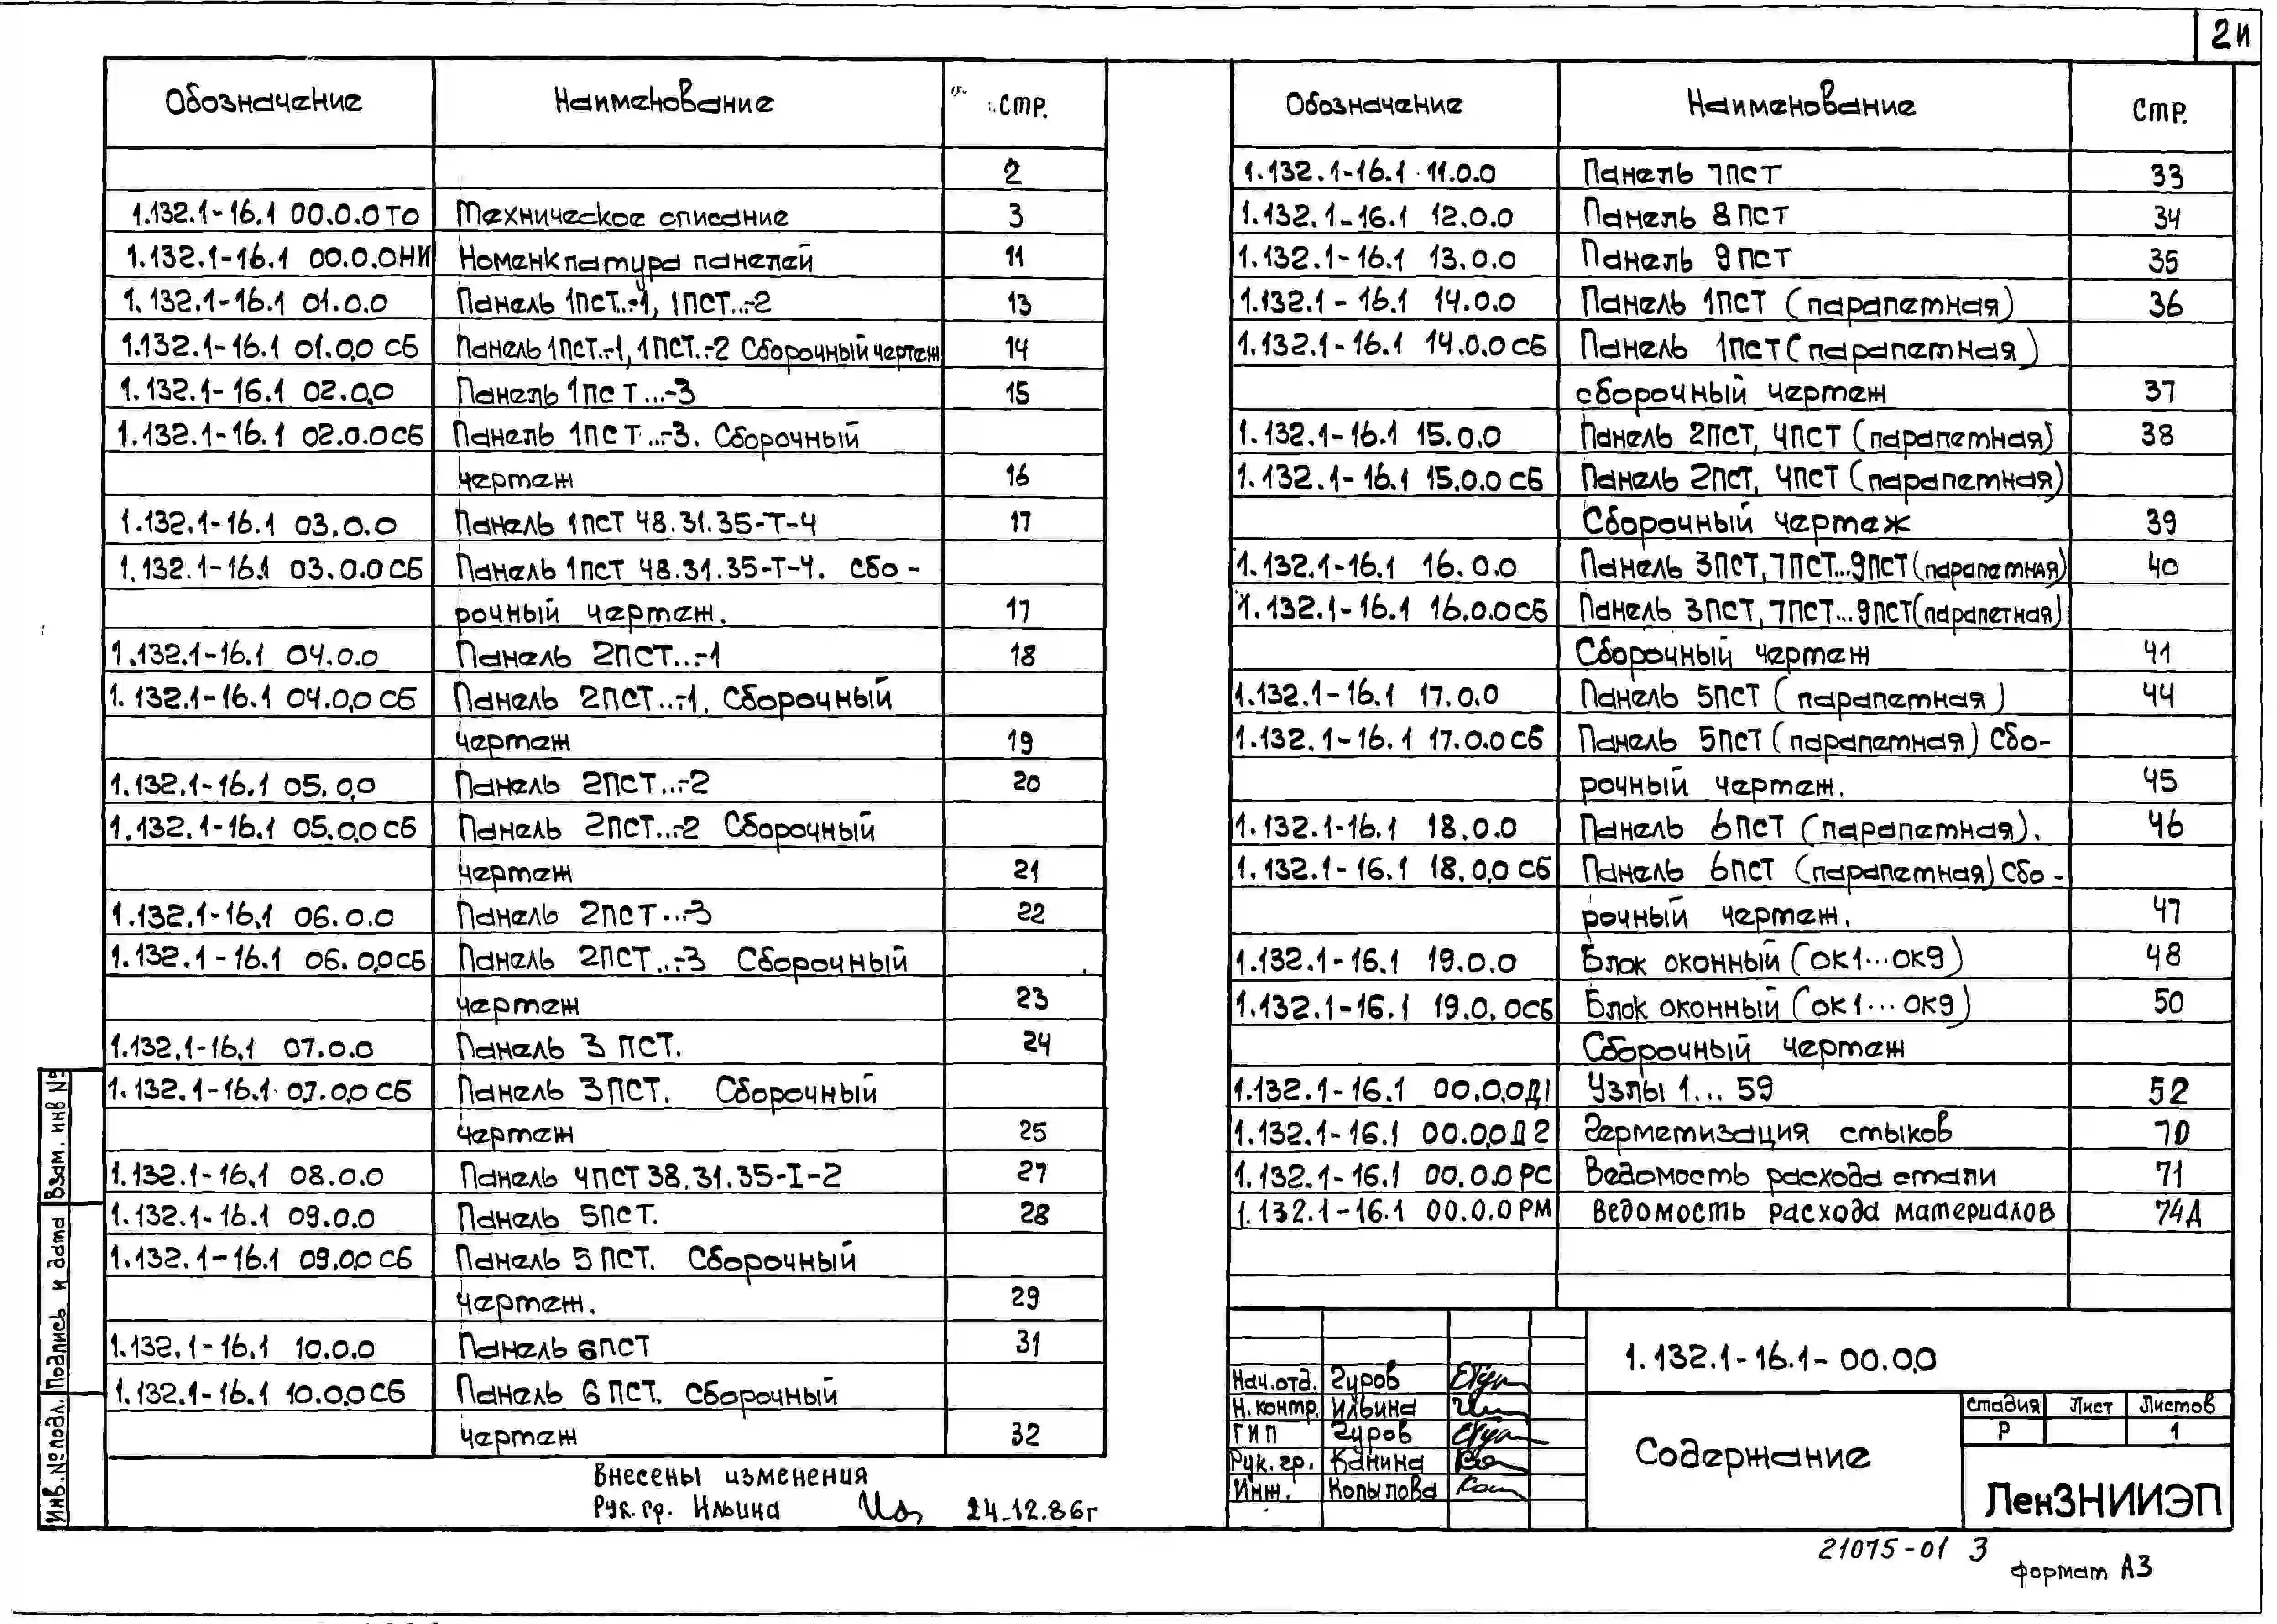 2и
Обозначение Наименование Стр.
2
1.132.1-16.1 00.0.0ТО Техническое описание 3
1.132.1-16.1 00.0.0НИ Номенклатура панелей 11
1.132.1-16.1 01.0.0 Панель 1ПСТ...-1, 1ПСТ...-2 13
1.132.1-16.1 01.0.0 СБ Панель 1ПСТ..-1, 1ПСТ..-2 Сборочный чертеж 14
1.132.1-16.1 02.0.0 Панель 1ПСТ...-3 15
1.132.1-16.1 02.0.0СБ Панель 1ПСТ...-3. Сборочный
чертеж 16
1.132.1-16.1 03.0.0 Панель 1ПСТ 48.31.35-Т-4 17
1.132.1-16.1 03.0.0СБ Панель 1ПСТ 48.31.35-Т-4. Сбо-
рочный чертеж. 17
1.132.1-16.1 04.0.0 Панель 2ПСТ...-1 18
1.132.1-16.1 04.0.0 СБ Панель 2ПСТ...-1. Сборочный
чертеж 19
1.132.1-16.1 05.0.0 Панель 2ПСТ...-2 20
1.132.1-16.1 05.0.0 СБ Панель 2ПСТ...-2 Сборочный
чертеж 21
1.132.1-16.1 06.0.0 Панель 2ПСТ...-3 22
1.132.1-16.1 06.0.0СБ Панель 2ПСТ...-3 Сборочный
чертеж 23
1.132.1-16.1 07.0.0 Панель 3 ПСТ. 24
1.132.1-16.1 07.0.0 СБ Панель 3ПСТ. Сборочный
чертеж 25
1.132.1-16.1 08.0.0 Панель 4ПСТ 38.31.35-I-2 27
1.132.1-16.1 09.0.0 Панель 5ПСТ. 28
1.132.1-16.1 09.0.0 СБ Панель 5 ПСТ. Сборочный
чертеж. 29
1.132.1-16.1 10.0.0 Панель 6ПСТ 31
1.132.1-16.1 10.0.0 СБ Панель 6 ПСТ. Сборочный
чертеж 32
Внесены изменения
Рук. гр. Ильина 24.12.86г
Обозначение Наименование Стр.
1.132.1-16.1 11.0.0 Панель 7ПСТ 33
1.132.1-16.1 12.0.0 Панель 8ПСТ 34
1.132.1-16.1 13.0.0 Панель 9ПСТ 35
1.132.1-16.1 14.0.0 Панель 1ПСТ (парапетная) 36
1.132.1-16.1 14.0.0СБ Панель 1ПСТ (парапетная)
сборочный чертеж 37
1.132.1-16.1 15.0.0 Панель 2ПСТ, 4ПСТ (парапетная) 38
1.132.1-16.1 15.0.0 СБ Панель 2ПСТ, 4ПСТ (парапетная)
Сборочный чертеж 39
1.132.1-16.1 16.0.0 Панель 3ПСТ, 7ПСТ...9ПСТ (парапетная) 40
1.132.1-16.1 16.0.0СБ Панель 3ПСТ, 7ПСТ...9ПСТ (парапетная)
Сборочный чертеж 41
1.132.1-16.1 17.0.0 Панель 5ПСТ (парапетная) 44
1.132.1-16.1 17.0.0СБ Панель 5ПСТ (парапетная) Сбо-
рочный чертеж. 45
1.132.1-16.1 18.0.0 Панель 6ПСТ (парапетная). 46
1.132.1-16.1 18.0.0 СБ Панель 6ПСТ (парапетная) Сбо-
рочный чертеж. 47
1.132.1-16.1 19.0.0 Блок оконный (ОК1...ОК9) 48
1.132.1-16.1 19.0.0СБ Блок оконный (ОК1...ОК9) 50
Сборочный чертеж
1.132.1-16.1 00.0.0Д1 Узлы 1...59 52
1.132.1-16.1 00.0.0Д2 Герметизация стыков 70
1.132.1-16.1 00.0.0 РС Ведомость расхода стали 71
1.132.1-16.1 00.0.0 РМ Ведомость расхода материалов 74Д
1.132.1-16.1-00.0.0
Нач.отд. Гуров
Н. контр. Ильина
ГИП Гуров
Рук. гр. Канина
Инж. Копылова
Содержание
Стадия Лист Листов
Р 1
ЛенЗНИИЭП
21075-01 3
формат А3
Взам. инв №
Подпись и дата
Инв. № подл.